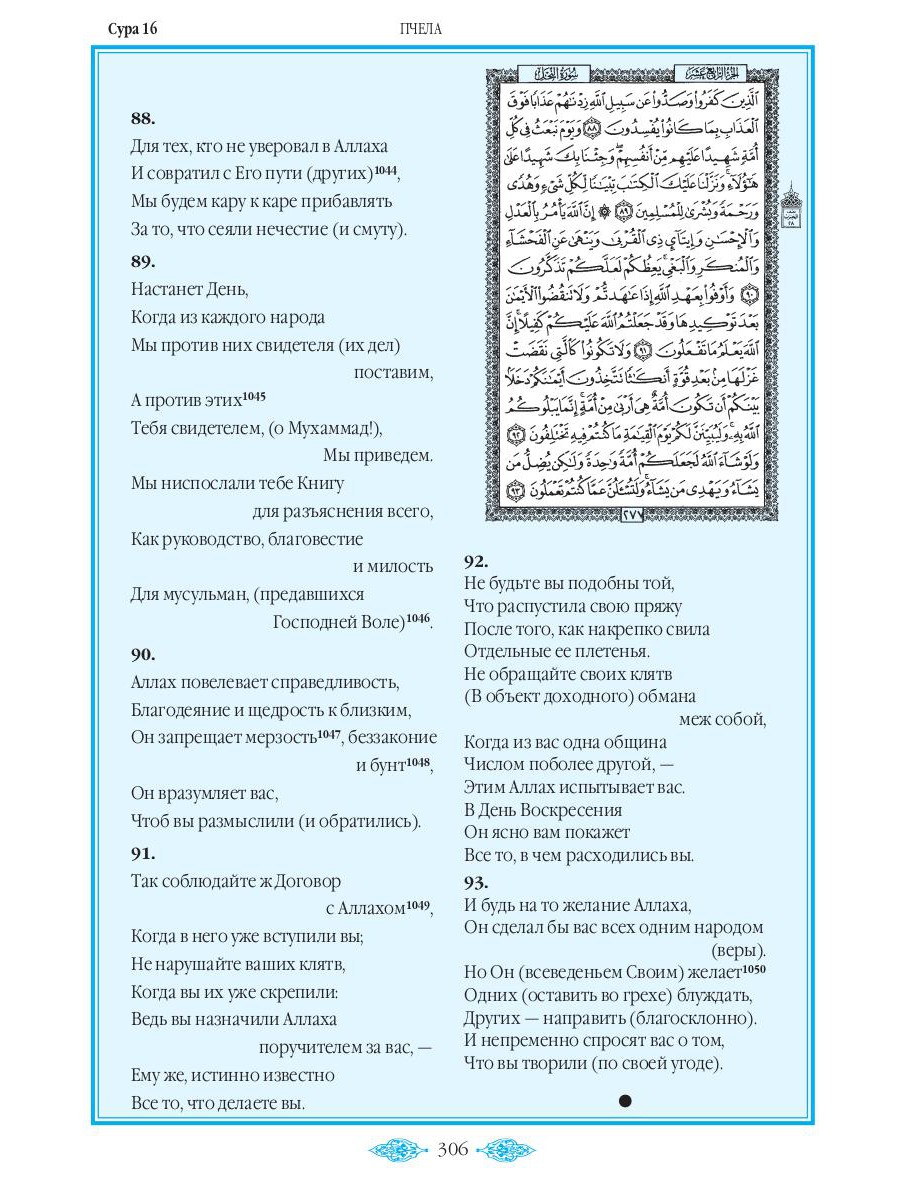 Сура 16
ПЧЕЛА
88.
Для тех, кто не уверовал в Аллаха
И совратил с Его пути (других)1044,
Мы будем кару к каре прибавлять
За то, что сеяли нечестие (и смуту).
89.
Настанет День,
Когда из каждого народа
Мы против них свидетеля (их дел)
поставим,
А против этих1045
Тебя свидетелем, (о Мухаммад!),
Мы приведем.
Мы ниспослали тебе Книгу
для разъяснения всего,
Как руководство, благовестие
и милость
Для мусульман, (предавшихся
Господней Воле)1046.
90.
Аллах повелевает справедливость,
Благодеяние и щедрость к близким,
Он запрещает мерзость1047, беззаконие
и бунт1048,
Он вразумляет вас,
Чтоб вы размыслили (и обратились).
91.
Так соблюдайте ж Договор
с Аллахом1049,
Когда в него уже вступили вы;
Не нарушайте ваших клятв,
Когда вы их уже скрепили:
Ведь вы назначили Аллаха
поручителем за вас, —
Ему же, истинно известно
Все то, что делаете вы.
سورة النحل
الجزء الرابع عشر
الَّذِينَ كَفَرُوا وَصَدُّوا عَن سَبِيلِ اللَّهِ زِدْنَاهُمْ عَذَابًا فَوْقَ
الْعَذَابِ بِمَا كَانُوا يُفْسِدُونَ ٨٨ وَيَوْمَ نَبْعَثُ فِي كُلِّ
أُمَّةٍ شَهِيدًا عَلَيْهِم مِّنْ أَنفُسِهِمْ وَجِئْنَا بِكَ شَهِيدًا عَلَىٰ
هَٰؤُلَاءِ وَنَزَّلْنَا عَلَيْكَ الْكِتَابَ تِبْيَانًا لِّكُلِّ شَيْءٍ وَهُدًى
وَرَحْمَةً وَبُشْرَىٰ لِلْمُسْلِمِينَ ٨٩ ۞ إِنَّ اللَّهَ يَأْمُرُ بِالْعَدْلِ
وَالْإِحْسَانِ وَإِيتَاءِ ذِي الْقُرْبَىٰ وَيَنْهَىٰ عَنِ الْفَحْشَاءِ
وَالْمُنكَرِ وَالْبَغْيِ يَعِظُكُمْ لَعَلَّكُمْ تَذَكَّرُونَ
٩٠ وَأَوْفُوا بِعَهْدِ اللَّهِ إِذَا عَاهَدتُّمْ وَلَا تَنقُضُوا الْأَيْمَانَ
بَعْدَ تَوْكِيدِهَا وَقَدْ جَعَلْتُمُ اللَّهَ عَلَيْكُمْ كَفِيلًا إِنَّ
اللَّهَ يَعْلَمُ مَا تَفْعَلُونَ ٩١ وَلَا تَكُونُوا كَالَّتِي نَقَضَتْ
غَزْلَهَا مِن بَعْدِ قُوَّةٍ أَنكَاثًا تَتَّخِذُونَ أَيْمَانَكُمْ دَخَلًا
بَيْنَكُمْ أَن تَكُونَ أُمَّةٌ هِيَ أَرْبَىٰ مِنْ أُمَّةٍ إِنَّمَا يَبْلُوكُمُ
اللَّهُ بِهِ وَلَيُبَيِّنَنَّ لَكُمْ يَوْمَ الْقِيَامَةِ مَا كُنتُمْ فِيهِ تَخْتَلِفُونَ ٩٢
وَلَوْ شَاءَ اللَّهُ لَجَعَلَكُمْ أُمَّةً وَاحِدَةً وَلَٰكِن يُضِلُّ مَن
يَشَاءُ وَيَهْدِي مَن يَشَاءُ وَلَتُسْأَلُنَّ عَمَّا كُنتُمْ تَعْمَلُونَ ٩٣
٢٧٧
92.
Не будьте вы подобны той,
Что распустила свою пряжу
После того, как накрепко свила
Отдельные ее плетенья.
Не обращайте своих клятв
(В объект доходного) обмана
меж собой,
Когда из вас одна община
Числом поболее другой, —
Этим Аллах испытывает вас.
В День Воскресения
Он ясно вам покажет
Все то, в чем расходились вы.
93.
И будь на то желание Аллаха,
Он сделал бы вас всех одним народом
(веры).
Но Он (всеведеньем Своим) желает1050
Одних (оставить во грехе) блуждать,
Других — направить (благосклонно).
И непременно спросят вас о том,
Что вы творили (по своей угоде).
306